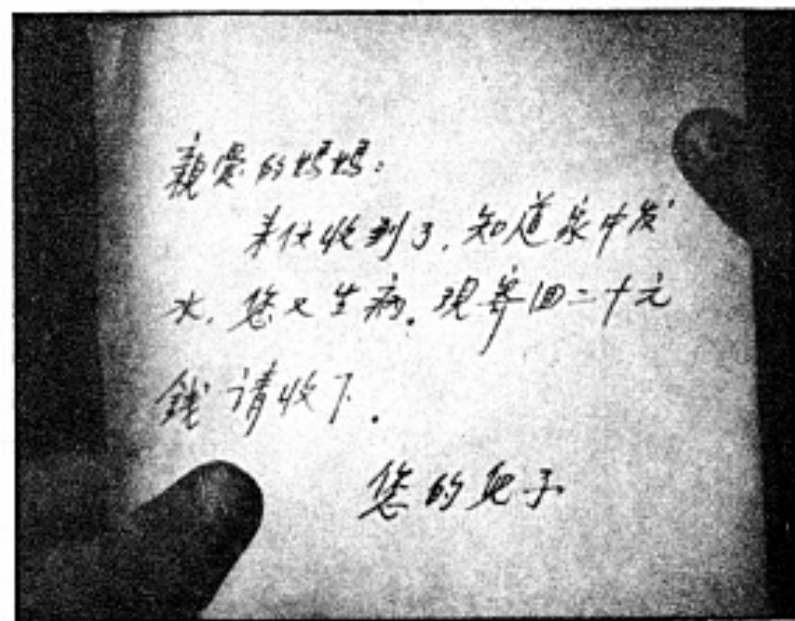 親爱的妈妈：
来信收到了，知道家中发
水，您又生病。现寄回二十元
錢请收下。
您的儿子